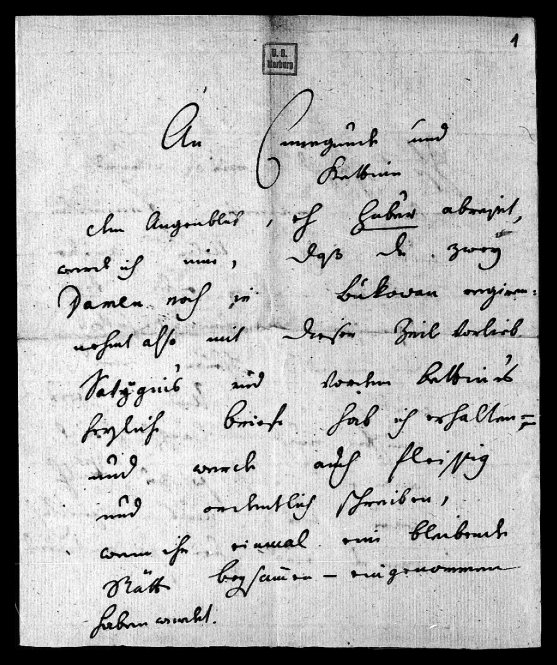 1
U. B.
Marburg
An Cunegunde und
Bettine
Im Augenblick, eh Haber abreist,
werde ich inne, daß die zwey
Damen noch in Bukowan regiren.
nehmt also mit dieser Zeil Vorlieb
und Bettinens
herzliche Briefe hab ich erhalten
und werde auch fleissig
und ordentlich schreiben,
wenn ihr einmal eine bleibende
Stätte beysammen – eingenommen
haben werdet.